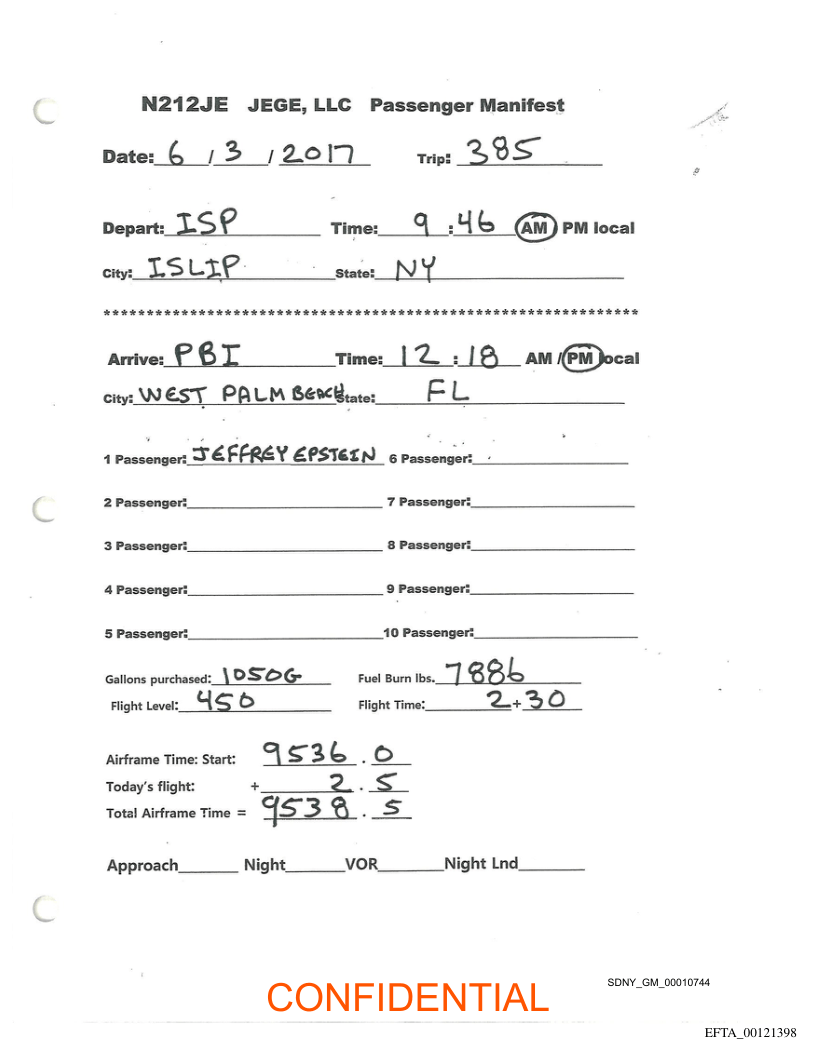 N212JE JEGE, LLC Passenger Manifest
Date: 6 / 3 / 2017 Trip: 385
Depart: ISP Time: 9 : 46 AM PM local
City: ISLIP State: NY
****************************************************************
Arrive: PBI Time: 12 : 18 AM / PM local
City: WEST PALM BEACH State: FL
1 Passenger: JEFFREY EPSTEIN 6 Passenger:
2 Passenger: 7 Passenger:
3 Passenger: 8 Passenger:
4 Passenger: 9 Passenger:
5 Passenger: 10 Passenger:
Gallons purchased: 1050G Fuel Burn lbs. 7886
Flight Level: 450 Flight Time: 2+30
Airframe Time: Start: 9536.0
Today's flight: + 2.5
Total Airframe Time = 9538.5
Approach Night VOR Night Lnd
SDNY_GM_00010744
CONFIDENTIAL
EFTA_00121398